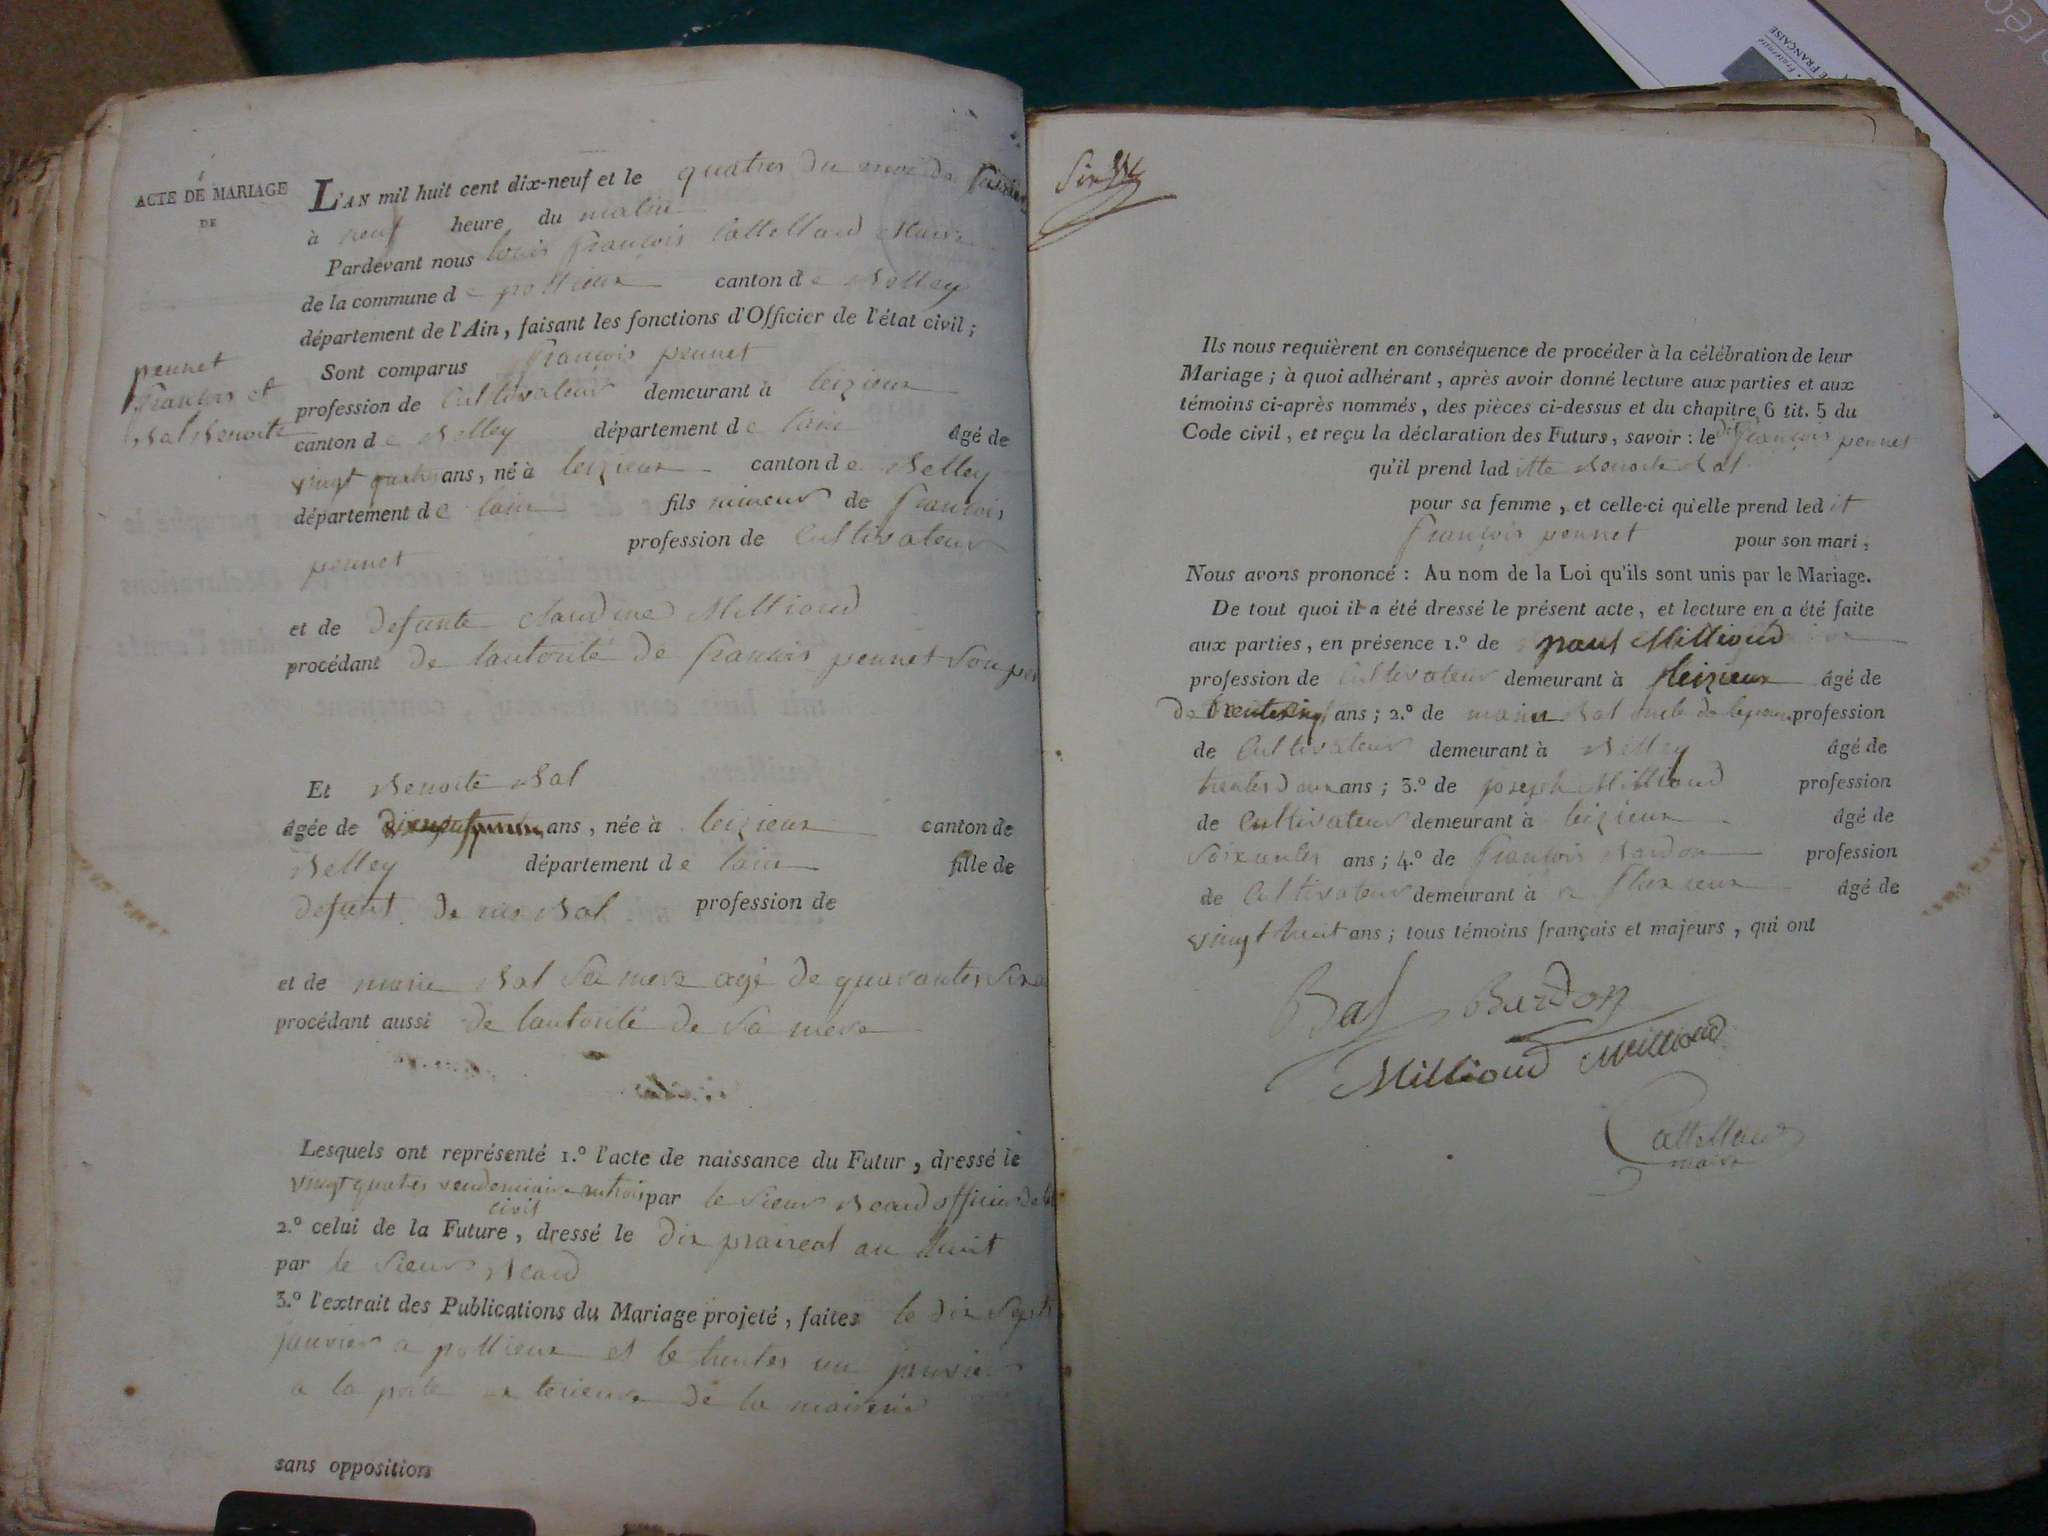 ACTE DE MARIAGE
DE
L'AN mil huit cent dix-neuf et le quatres du mois de
à neuf heure du matin
Pardevant nous louis françois Cattelland Maire
de la commune de pollieux canton de Belley
département de l'Ain, faisant les fonctions d'Officier de l'état civil;
pennet
françois et
Bal Benoite
Sont comparus françois pennet
profession de Cultivateur demeurant à leizieux
canton de Belley département de lain âgé de
vingt quatres ans, né à leizieux canton de Belley
département de lain fils mineur de francois
pennet profession de Cultivateur
et de defunte claudine Millioud
procédant de lautorité de francois pennet son per
Et Benoite Bal
âgée de dixneuf ans, née à leizieux canton de
Belley département de lain fille de
defunt Denis Bal profession de
et de marie Bal sa mere agé de quarantes six
procédant aussi de lautorité de sa mere
Lesquels ont représenté 1.º l'acte de naissance du Futur, dressé le
vingt quatres vendemiaire an trois par le sieur officier de
civil
2.º celui de la Future, dressé le dix praireal an huit
par le sieur
3.º l'extrait des Publications du Mariage projeté, faites le dix sept
janvier a pollieux et le trentes un janvier
a la porte exterieure de la mairerie
sans opposition
FRANÇAISE
Ils nous requièrent en conséquence de procéder à la célébration de leur
Mariage; à quoi adhérant, après avoir donné lecture aux parties et aux
témoins ci-après nommés, des pièces ci-dessus et du chapitre 6 tit. 5 du
Code civil, et reçu la déclaration des Futurs, savoir: le dit françois pennet
qu'il prend laditte Benoite Bal
pour sa femme, et celle-ci qu'elle prend ledit
françois pennet pour son mari,
Nous avons prononcé: Au nom de la Loi qu'ils sont unis par le Mariage.
De tout quoi il a été dressé le présent acte, et lecture en a été faite
aux parties, en présence 1.º de paul Millioud
profession de Cultivateur demeurant à leizieux âgé de
de trentecinq ans; 2.º de Bal oncle de profession
de Cultivateur demeurant à Belley âgé de
trentes deux ans; 3.º de joseph Millioud profession
de Cultivateur demeurant à leizieux âgé de
soixantes ans; 4.º de françois Bardon profession
de Cultivateur demeurant à âgé de
vingt huit ans; tous témoins français et majeurs, qui ont
Bal Bardon
Millioud Millioud
Cattelland
maire